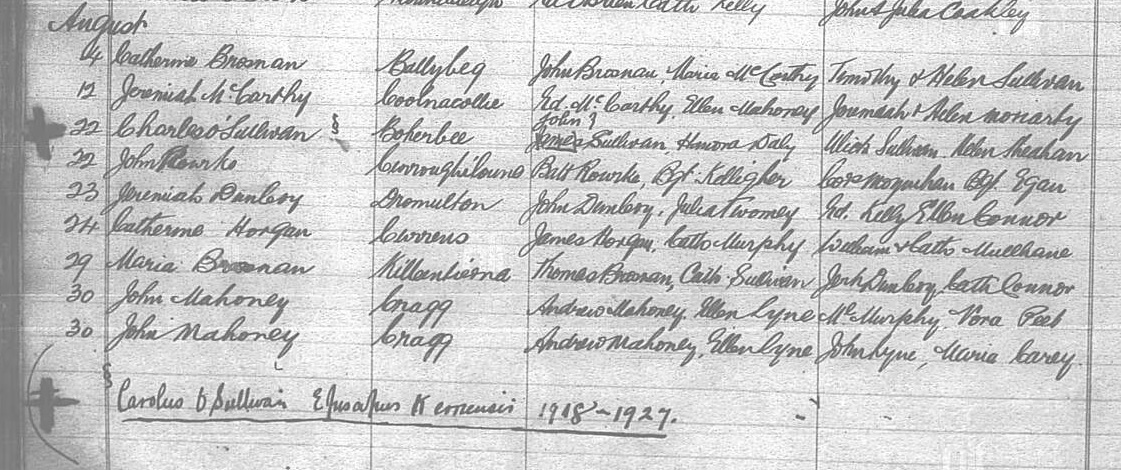 Cath Kelly John & Julia Coakley
August
4 Catherine Brosnan Ballybeg John Brosnan Maria McCarthy Timothy & Helen Sullivan
12 Jeremiah McCarthy Coolnacollie Ed. McCarthy, Ellen Mahoney Jeremiah & Helen Moriarty
John?
22 Charles O'Sullivan § Boherbee James Sullivan, Honora Daly Mich Sullivan, Helen Sheahan
22 John Rourke Batt Rourke, Bgt. Kelligher Moynihan Bgt. Egan
23 Jeremiah Dunlevy Dromulton John Dunlevy, Julia Twomey Ed. Kelly Ellen Connor
24 Catherine Horgan Currens James Horgan, Cath Murphy William & Cath Mullhane
29 Maria Brosnan Killeentierna Thomas Brosnan, Cath Sullivan Jerh Dunlevy, Cath Connor
30 John Mahoney Cragg Andrew Mahoney, Ellen Lyne Murphy, Nora Peet
30 John Mahoney Cragg Andrew Mahoney, Ellen Lyne John Lyne, Maria Carey
§ Carolus O'Sullivan Episcopus Kerriensis 1918-1927.